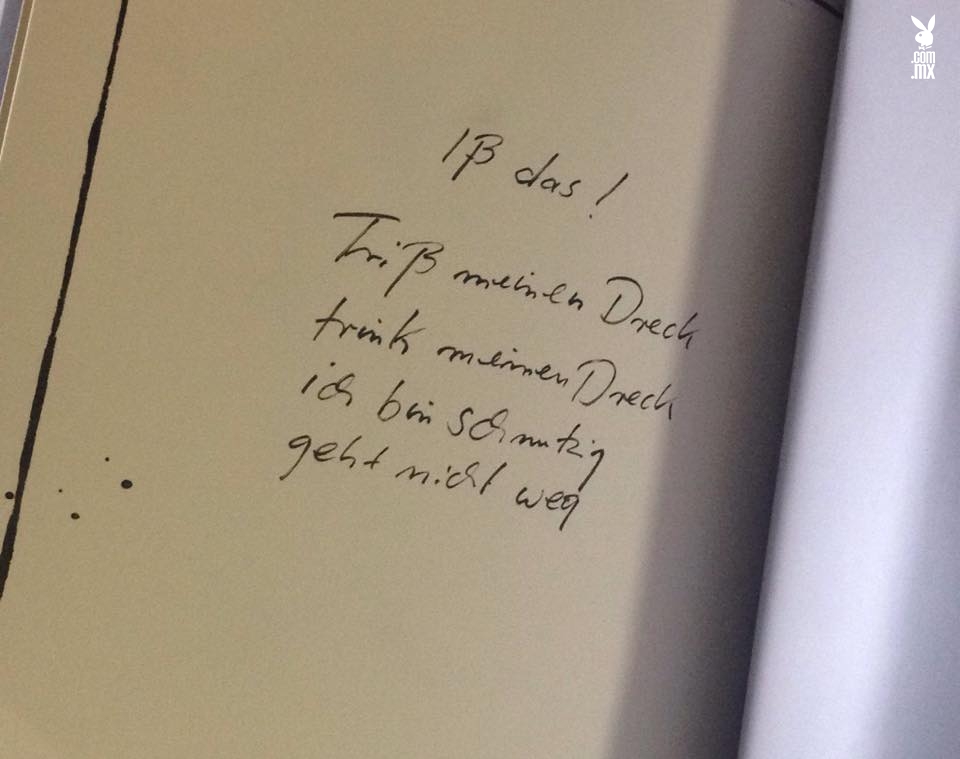 Iß das!
Friß meinen Dreck
trink meinen Dreck
ich bin schmutzig
geht nicht weg
.com
.mx